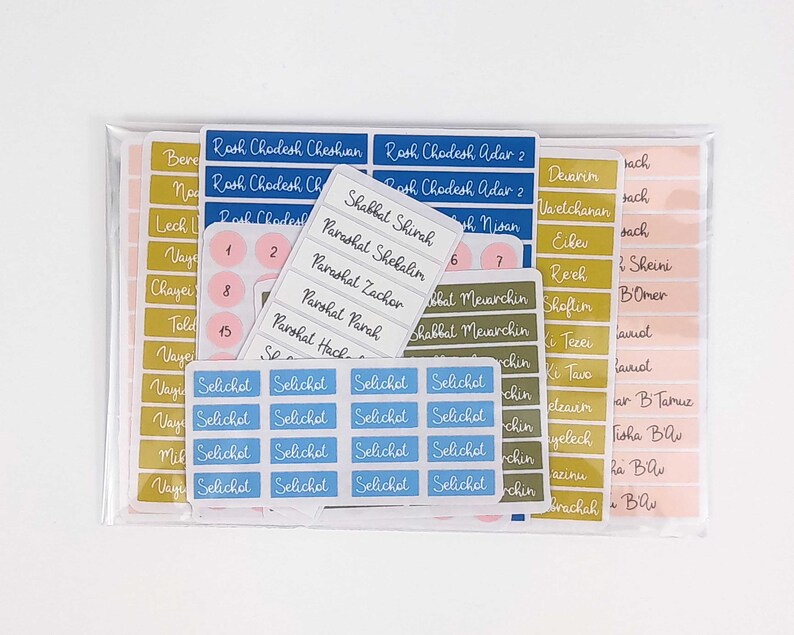 Bere
Noa
Lech L
Vaye
Chayei
Told
Vayei
Vayis
Vaye
Mik
Vayi
Rosh Chodesh Cheshvan
Rosh Chodesh Adar 2
Rosh Chodesh Che
Rosh Chodesh Adar 2
Rosh Chodesh
desh Nisan
1
2
6
7
8
15
Shabbat Shirah
Parashat Shekalim
Parashat Zachor
Parshat Parah
Parshat Hach
bbat Mevarchin
habbat Mevarchin
evarchin
archin
varchin
Selichot Selichot Selichot Selichot
Selichot Selichot Selichot Selichot
Selichot Selichot Selichot Selichot
Selichot Selichot Selichot Selichot
Devarim
Va'etchanan
Eikev
Re'eh
Shoftim
Ki Tezei
Ki Tavo
etzavim
ayelech
azinu
abrachah
sach
sach
sach
Sheini
B'Omer
avuot
avuot
ar B'Tamuz
Tisha B'Av
ha B'Av
B'Av